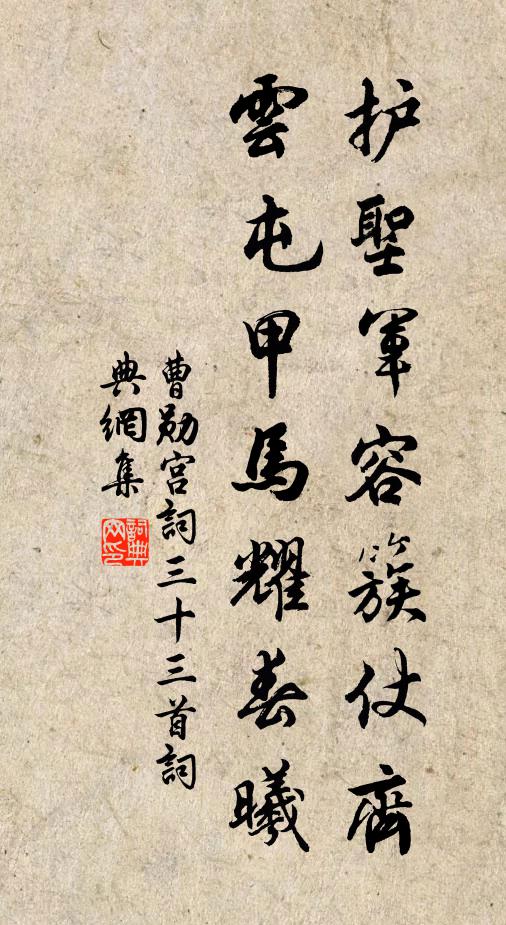 护聖軍容簇仗齊
雲屯甲馬耀春曦
曹勛宫詞三十三首詞
典網集
詞典
网印